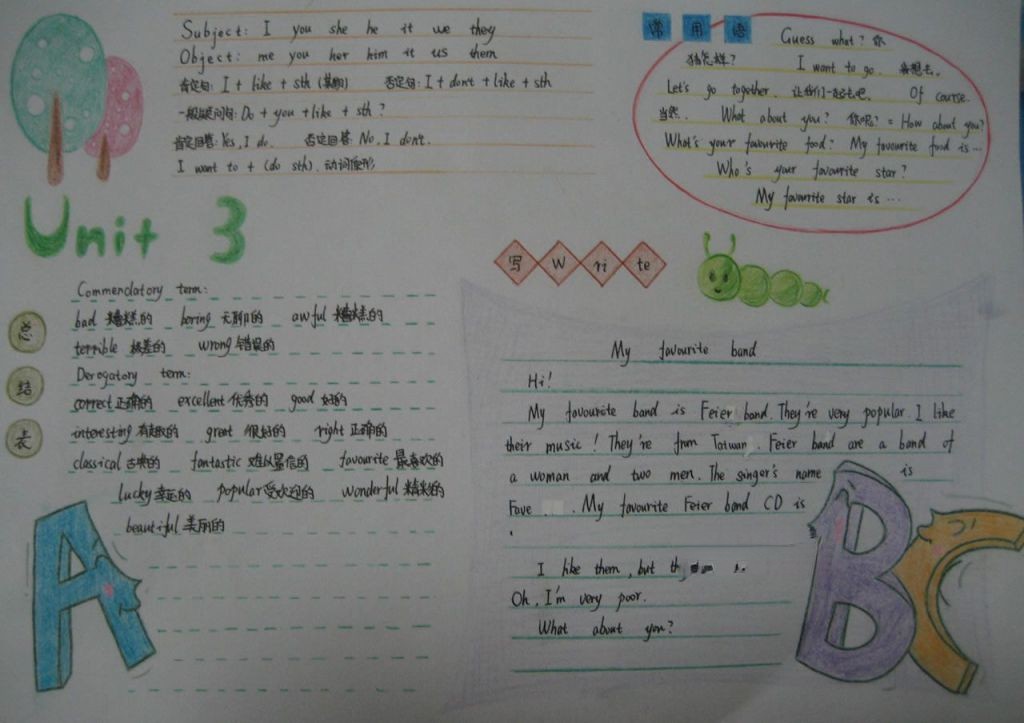 Subject: I you she he it we they
Object: me you her him it us them
肯定句: I + like + sth (某物) 否定句: I + don't + like + sth
一般疑问句: Do + you + like + sth ?
肯定回答: Yes, I do. 否定回答: No, I don't.
I want to + (do sth). 动词原形
常用语
Guess what? 你
猜怎样? I want to go. 我想去.
Let's go together. 让我们一起去吧. Of course.
当然. What about you? 你呢? = How about you?
What's your favourite food? My favourite food is ...
Who's your favourite star?
My favourite star is ...
Unit 3
总结表
Commendatory term:
bad 糟糕的 boring 无聊的 awful 糟糕的
terrible 极差的 wrong 错误的
Derogatory term:
correct 正确的 excellent 优秀的 good 好的
interesting 有趣的 great 很好的 right 正确的
classical 古典的 fantastic 难以置信的 favourite 最喜欢的
lucky 幸运的 popular 受欢迎的 wonderful 精彩的
beautiful 美丽的
写 Write
My favourite band
Hi!
My favourite band is Feier band. They're very popular. I like
their music! They're from Taiwan. Feier band are a band of
a woman and two men. The singer's name is
Faye. My favourite Feier band CD is
.
I like them, but
Oh, I'm very poor.
What about you?
A
B
C